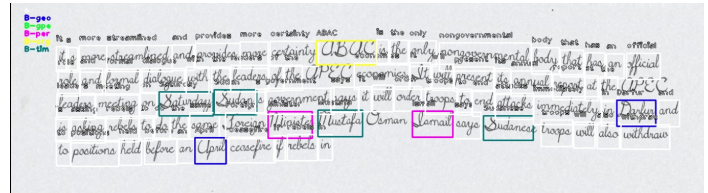 B-geo
B-gpe
B-per
B-tim
It s more streamlined and provides more certainty ABAC is the only nongovernmental body that has an official
it s more streamlined and provides more certainty ABAC is the only nongovernmental body that has an official
role and formal dialogue with the leaders of the APEC economics It will present its annual report at the APEC
leaders meeting on Saturday Sudan s government says it will order troops to end attacks immediately in Darfur and
is asking rebels to do the same Foreign Minister Mustafa Osman Ismail says Sudanese troops will also withdraw
to positions held before an April ceasefire if rebels in